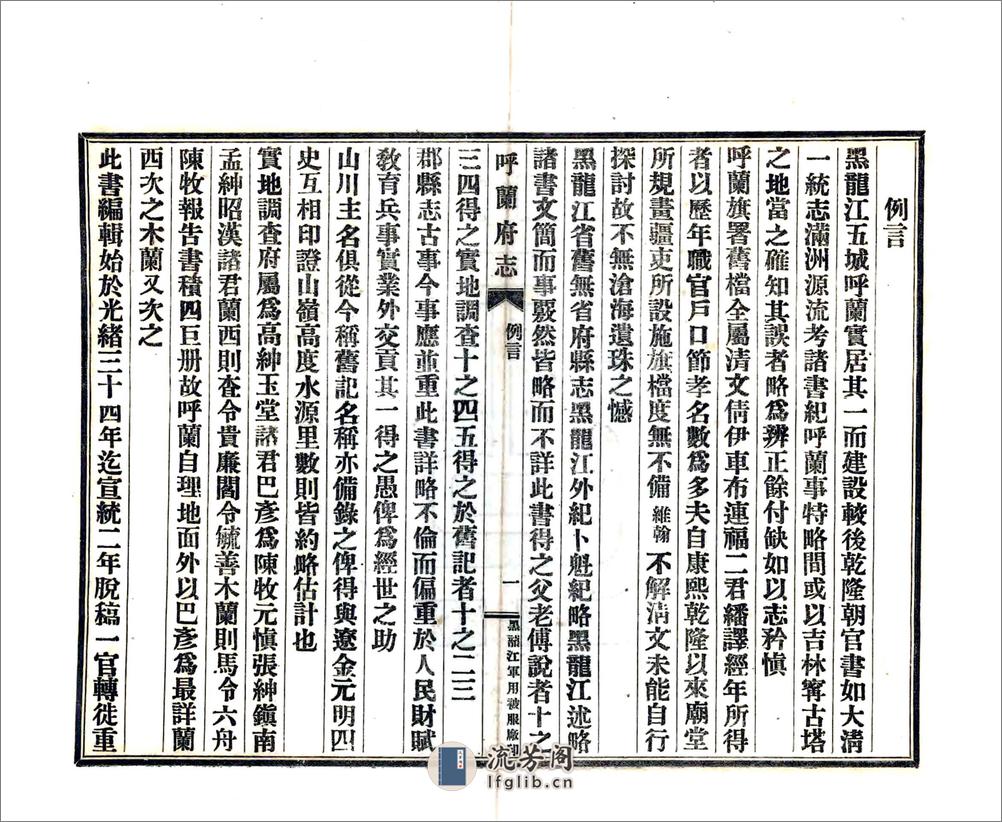 例言
黑龍江五城呼蘭實居其一而建設較後乾隆朝官書如大淸
一統志滿洲源流考諸書紀呼蘭事特略間或以吉林寗古塔
之地當之確知其誤者略爲辨正餘付缺如以志矜愼
呼蘭旗署舊檔全屬淸文倩伊車布連福二君繙譯經年所得
者以歷年職官戶口節孝名數爲多夫自康熙乾隆以來廟堂
所規畫疆吏所設施旗檔度無不備維翰不解淸文未能自行
探討故不無滄海遺珠之憾
黑龍江省舊無省府縣志黑龍江外紀卜魁紀略黑龍江述略
諸書文簡而事覈然皆略而不詳此書得之父老傳說者十之
呼蘭府志
例言
一
黑龍江軍用被服廠印
三四得之實地調查十之四五得之於舊記者十之二三
郡縣志古事今事應並重此書詳略不倫而偏重於人民財賦
敎育兵事實業外交貢其一得之愚俾爲經世之助
山川主名俱從今稱舊記名稱亦備錄之俾得與遼金元明四
史互相印證山嶺高度水源里數則皆約略估計也
實地調查府屬爲高紳玉堂諸君巴彥爲陳牧元愼張紳鎭南
孟紳昭漢諸君蘭西則査令貴廉閣令毓善木蘭則馬令六舟
陳牧報告書積四巨册故呼蘭自理地面外以巴彥爲最詳蘭
西次之木蘭又次之
此書編輯始於光緖三十四年迄宣統二年脫稿一官轉徙重
流芳阁
lfglib.cn